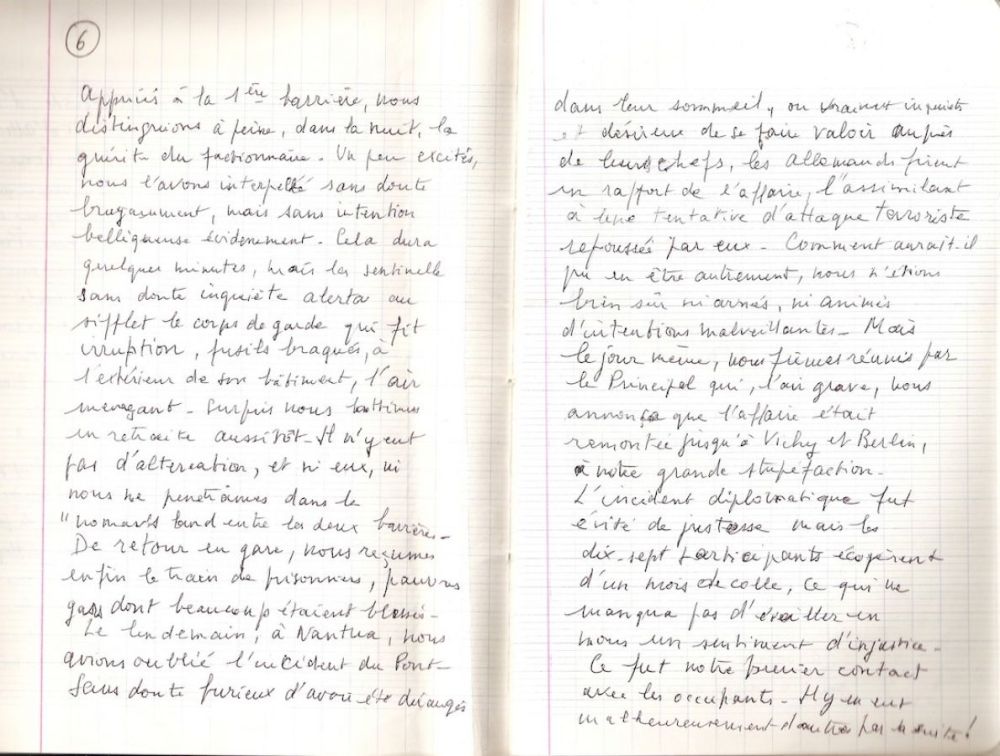 6
appuiés à la 1ère barrière, nous
distinguions à peine, dans la nuit, la
guérite du factionnaire. Un peu excités,
nous l'avons interpellé sans doute
bruyamment, mais sans intention
belliqueuse évidemment. Cela dura
quelques minutes, mais la sentinelle
sans doute inquiète alerta au
sifflet le corps de garde qui fit
irruption, fusils braqués, à
l'extérieur de son bâtiment, l'air
menaçant. Surpris nous battîmes
en retraite aussitôt. Il n'y eut
pas d'altercation, et ni eux, ni
nous ne penetrâmes dans le
"no man's land entre les deux barrières.
De retour en gare, nous reçumes
enfin le train de prisonniers, pauvres
gars dont beaucoup étaient blessés.
Le lendemain, à Nantua, nous
avions oublié l'incident du Pont.
Sans doute furieux d'avoir été dérangés
dans leur sommeil, ou vraiment inquiets
et désireux de se faire valoir auprès
de leurs chefs, les allemands firent
un rapport de l'affaire, l'assimilant
à une tentative d'attaque terroriste
repoussée par eux. Comment aurait-il
pu en être autrement, nous n'étions
bien sûr ni armés, ni animés
d'intentions malveillantes. Mais
le jour même, nous fûmes réunis par
le Principal qui, l'air grave, nous
annonça que l'affaire était
remontée jusqu'à Vichy et Berlin,
à notre grande stupéfaction.
L'incident diplomatique fut
évité de justesse mais les
dix-sept participants écopèrent
d'un mois de colle, ce qui ne
manqua pas d'éveiller en
nous un sentiment d'injustice.
Ce fut notre premier contact
avec les occupants. Il y en eut
malheureusement d'autres par la suite!